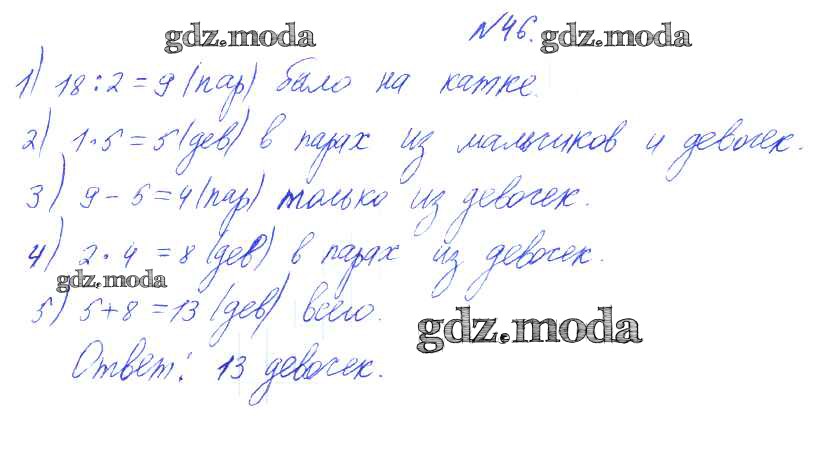 gdz.moda №46. gdz.moda
1) 18:2=9 (пар) было на катке.
2) 1·5=5 (дев) в парах из мальчиков и девочек.
3) 9-5=4 (пар) только из девочек.
4) 2·4=8 (дев) в парах из девочек.
gdz.moda
5) 5+8=13 (дев) всего.
gdz.moda
Ответ: 13 девочек.